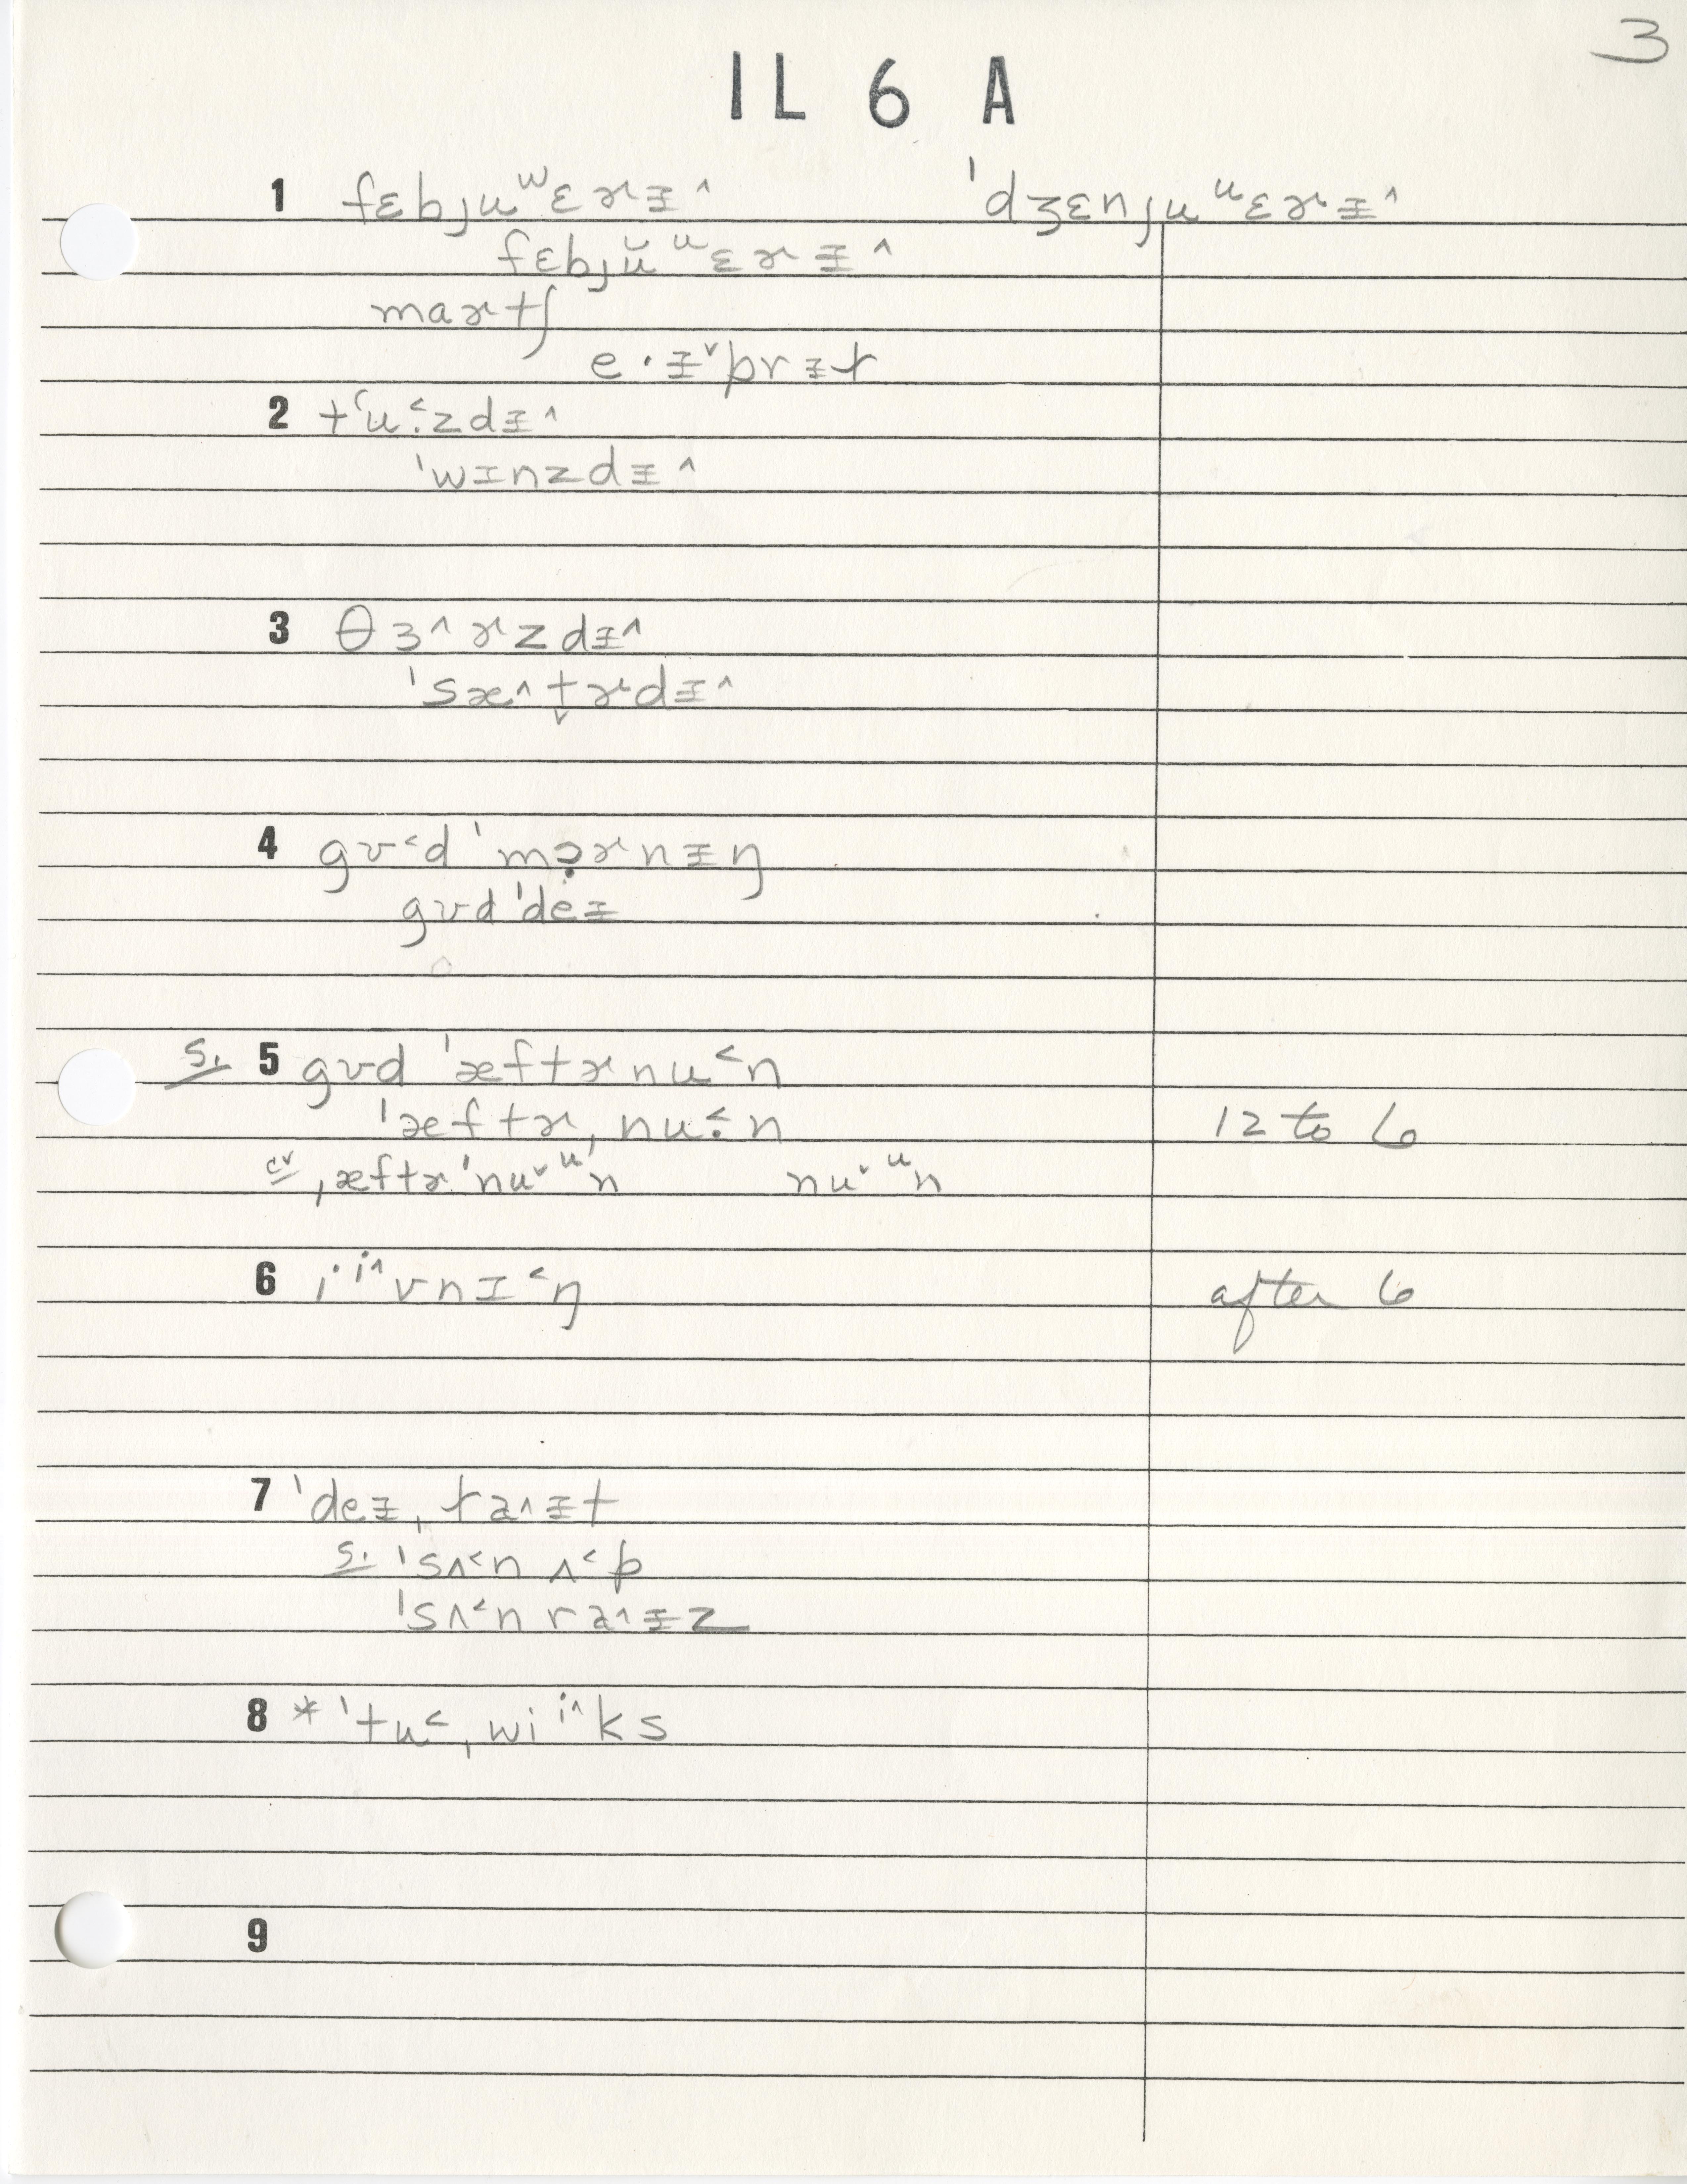 3
IL 6 A
1 fɛbjuʷɛɚᵻ^ ˈdʒɛnjuᵘɛɚᵻ^
fɛbjŭᵘɛɚᵻ^
maɚtʃ
e·ᵻˇprᵻɫ
2 tʻu˂·zdᵻ^
ˈwɪnzdᵻ^
3 θɜ^ɚzdᵻ^
ˈsæ^t̬ɚdᵻ^
4 gʊ˂d ˈmɔ̣ɚnᵻŋ
gʊd ˈdeᵻ
S. 5 gʊd ˈæftɚnu˂n
ˈæftɚˌnu˂·n 12 to 6
cv ˌæftɚˈnuˇᵘn nuˇᵘn
6 i·ⁱ^vnɪ˂ŋ after 6
7 ˈdeᵻˌɫa^ᵻt
S. ˈsʌ˂n ʌ˂p
ˈsʌ˂n ra^ᵻz
8 * ˈtu˂ˌwiⁱ^ks
9